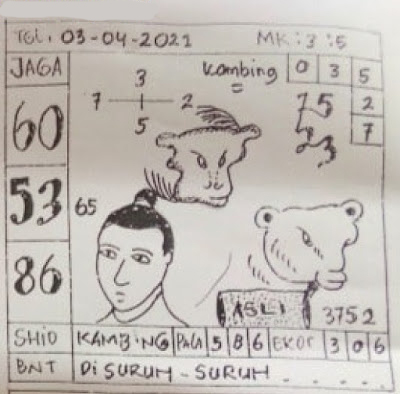 TGL. 03-04-2021 MK:3:5
JAGA
Kambing 0 3 5
3
7 2
5
75 2
7
23
60
53
65
86
ASLI
3752
SHIO KAMBING PALA 5 8 6 EKOR 3 0 6
BNT Di SURUH - SURUH . . . . .